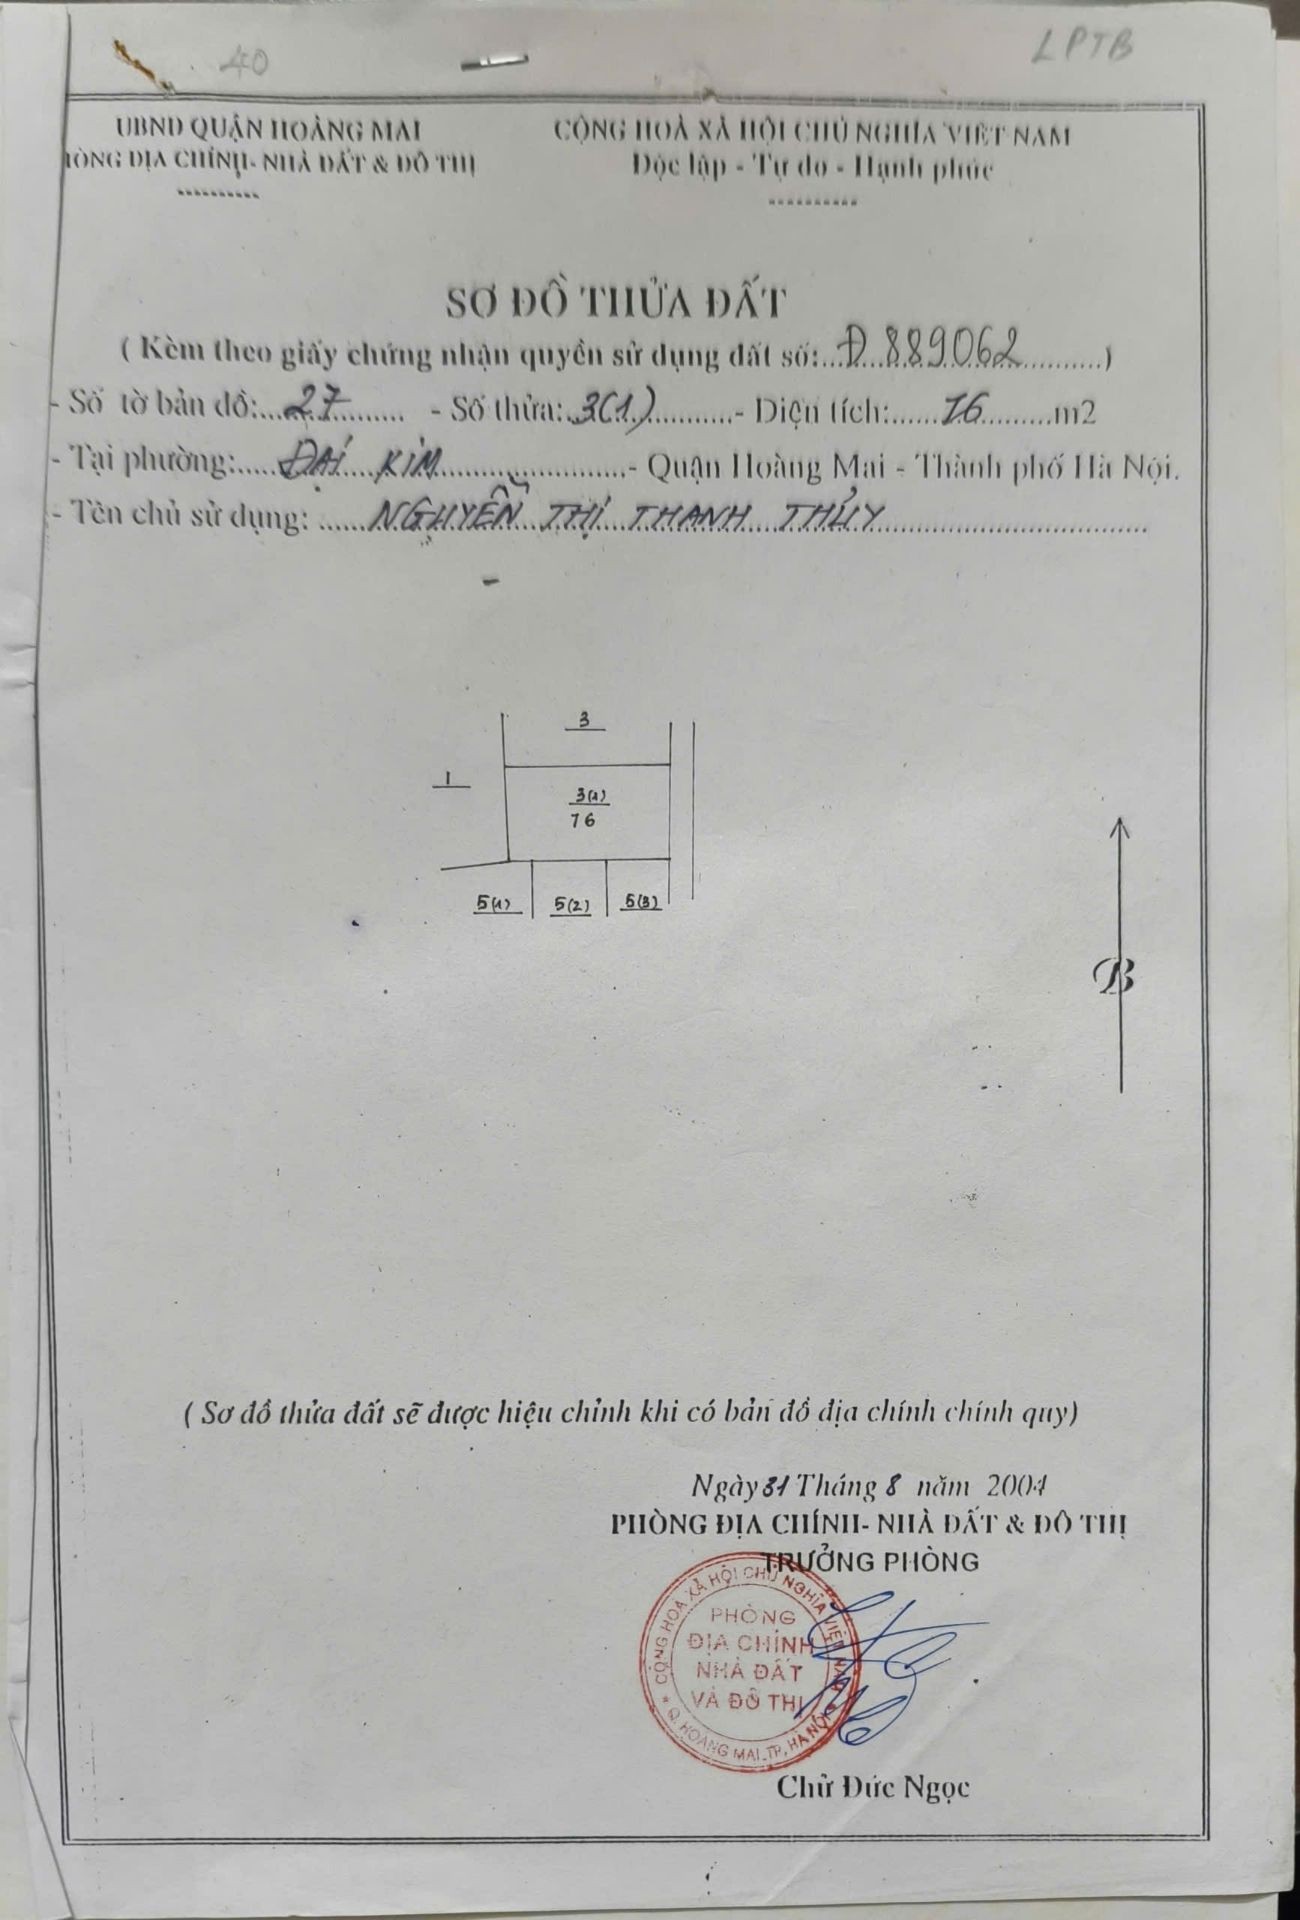 40
LPTB
UBND QUẬN HOÀNG MAI
HÒNG ĐỊA CHÍNH- NHÀ ĐẤT & ĐÔ THỊ
CỘNG HOÀ XÃ HỘI CHỦ NGHĨA VIỆT NAM
Độc lập - Tự do - Hạnh phúc
SƠ ĐỒ THỬA ĐẤT
( Kèm theo giấy chứng nhận quyền sử dụng đất số: Đ 889062 )
- Số tờ bản đồ: 27 - Số thửa: 3(1) - Diện tích: 76 m2
- Tại phường: ĐẠI KIM - Quận Hoàng Mai - Thành phố Hà Nội.
- Tên chủ sử dụng: NGUYỄN THỊ THANH THỦY
3
1
3(1)
76
5(1) 5(2) 5(3)
B
( Sơ đồ thửa đất sẽ được hiệu chỉnh khi có bản đồ địa chính chính quy)
Ngày 31 Tháng 8 năm 2004
PHÒNG ĐỊA CHÍNH- NHÀ ĐẤT & ĐÔ THỊ
TRƯỞNG PHÒNG
CỘNG HOÀ XÃ HỘI CHỦ NGHĨA VIỆT NAM
PHÒNG
ĐỊA CHÍNH
NHÀ ĐẤT
VÀ ĐÔ THỊ
Q. HOÀNG MAI_TP. HÀ NỘI
Chử Đức Ngọc